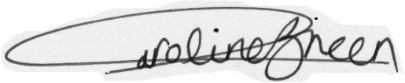 Caroline Breen